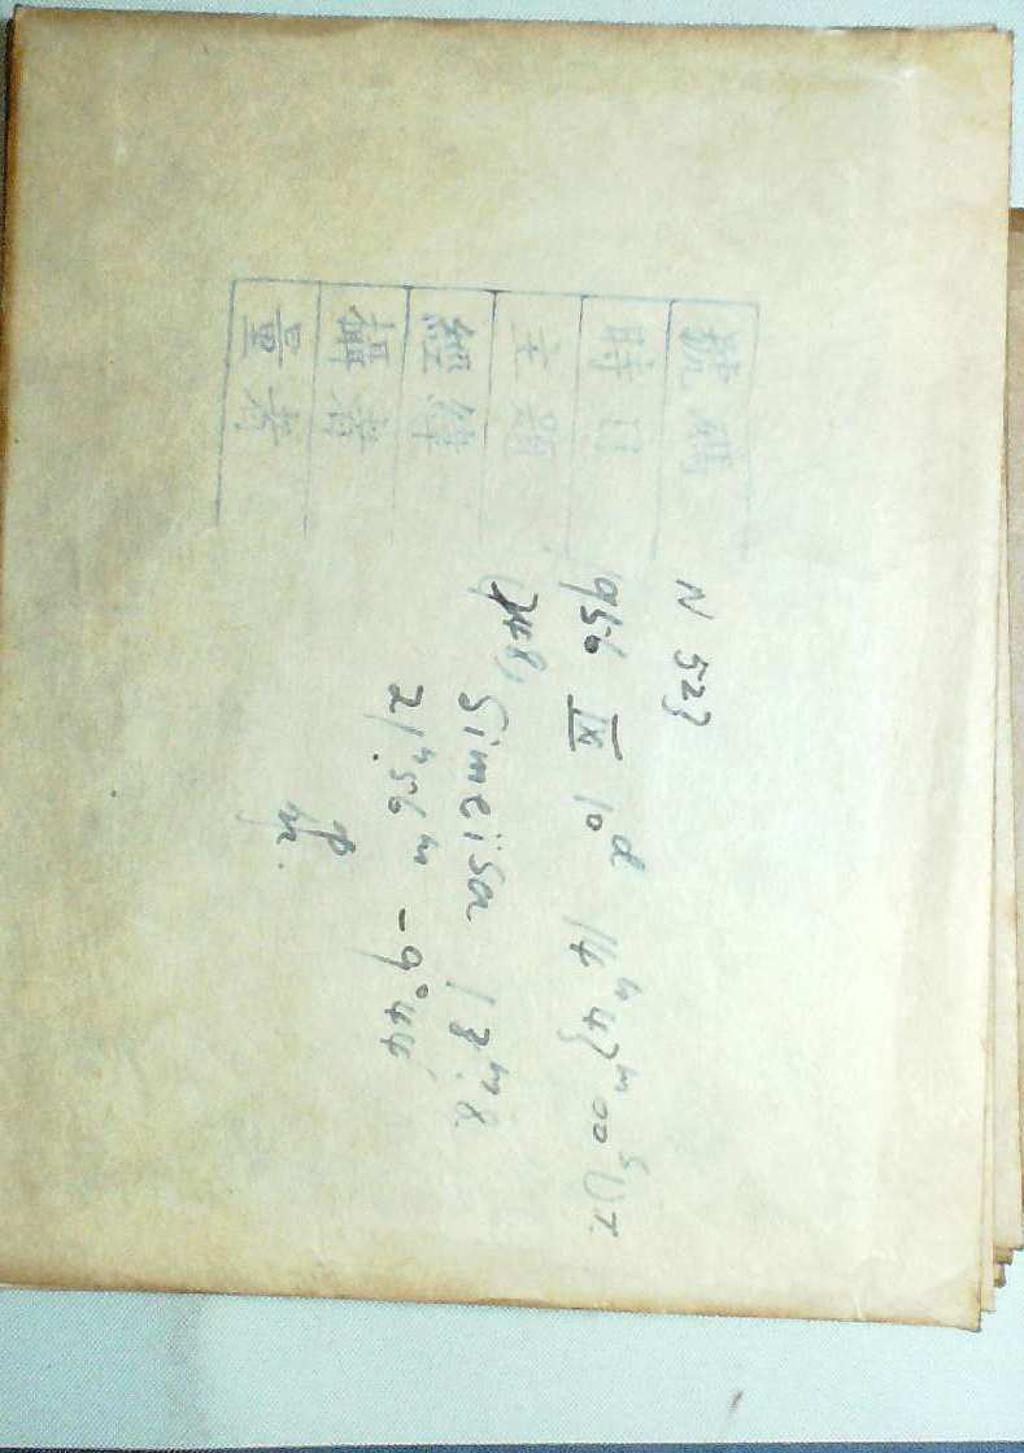 號碼 N 523
時日 956 IX 10d 14h 43m 00s UT.
主題 (748) Simeisa 13m.2
經緯 21h 56m -9°44'
攝者
量者